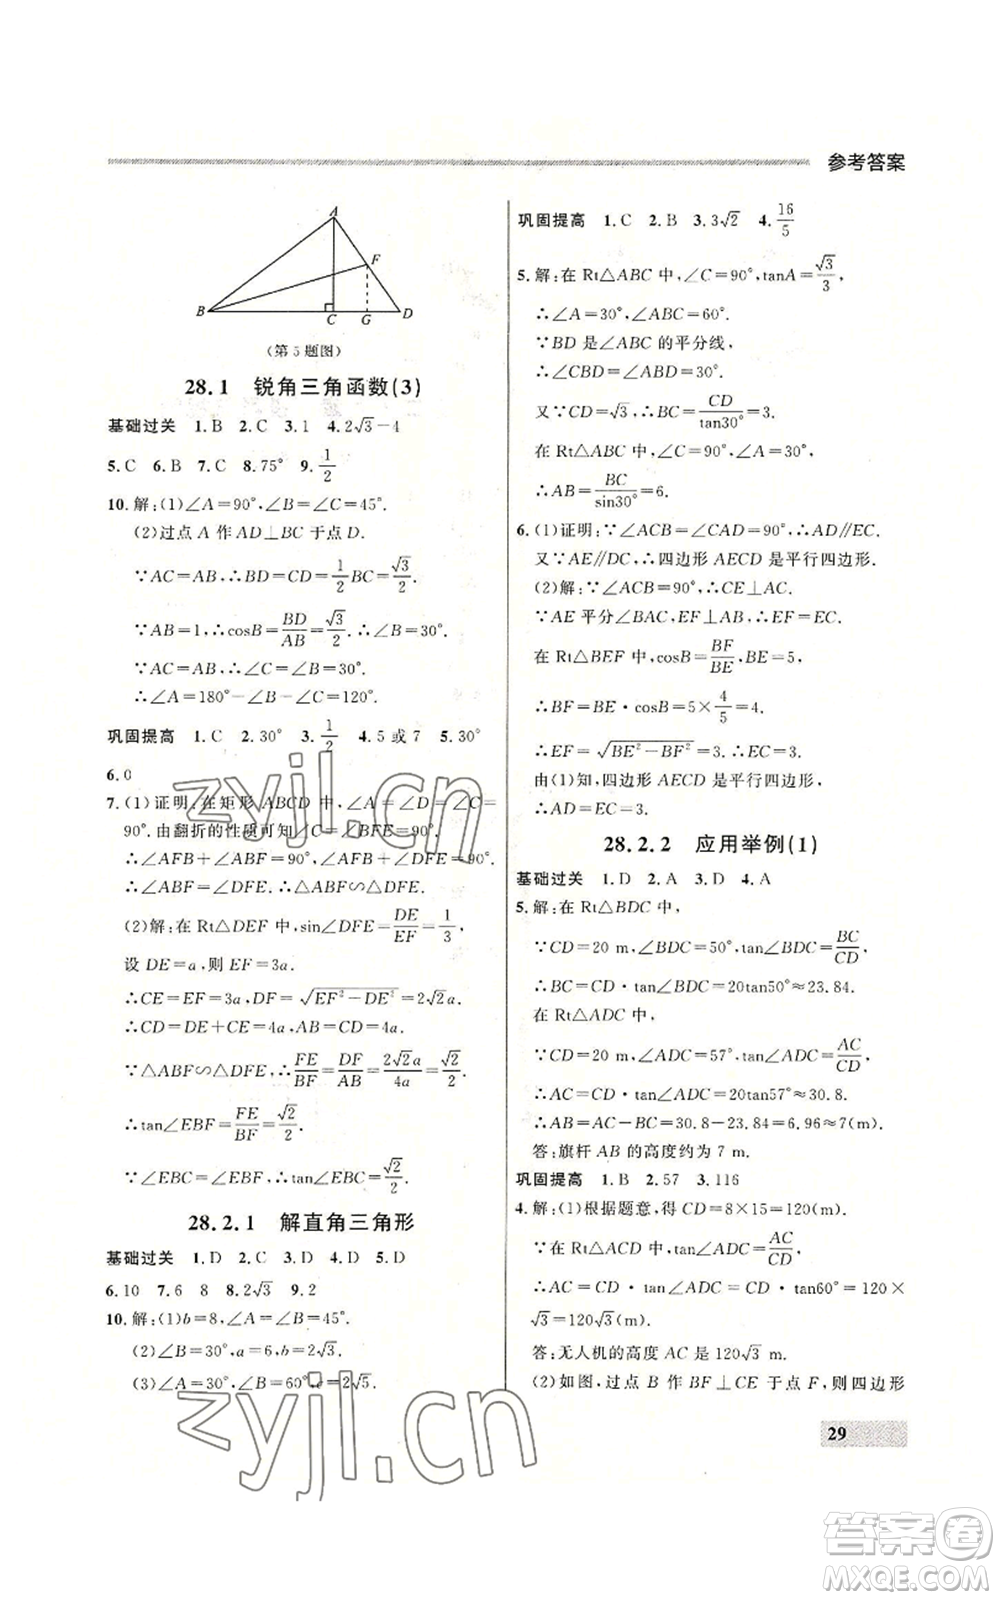 参考答案
A
F
B
C
G
D
(第5题图)
28.1 锐角三角函数(3)
基础过关 1.B 2.C 3.1 4.2√3-4
5.C 6.B 7.C 8.75° 9.1/2
10.解:(1)∠A=90°,∠B=∠C=45°.
(2)过点A作AD⊥BC于点D.
∵AC=AB,∴BD=CD=1/2BC=√3/2.
∵AB=1,∴cosB=BD/AB=√3/2.∴∠B=30°.
∵AC=AB,∴∠C=∠B=30°.
∴∠A=180°-∠B-∠C=120°.
巩固提高 1.C 2.30° 3.1/2 4.5或7 5.30°
6.0
7.(1)证明:在矩形ABCD中,∠A=∠D=∠C=
90°.由翻折的性质可知∠C=∠BFE=90°.
∴∠AFB+∠ABF=90°,∠AFB+∠DFE=90°.
∴∠ABF=∠DFE.∴△ABF∽△DFE.
(2)解:在Rt△DEF中,sin∠DFE=DE/EF=1/3.
设DE=a,则EF=3a.
∴CE=EF=3a,DF=√(EF²-DE²)=2√2a.
∴CD=DE+CE=4a,AB=CD=4a.
∵△ABF∽△DFE,∴FE/BF=DF/AB=2√2a/4a=√2/2.
∴tan∠EBF=FE/BF=√2/2.
∵∠EBC=∠EBF,∴tan∠EBC=√2/2.
28.2.1 解直角三角形
基础过关 1.D 2.C 3.D 4.D 5.D
6.10 7.6 8 8.2√3 9.2
10.解:(1)b=8,∠A=∠B=45°.
(2)∠B=30°,a=6,b=2√3.
(3)∠A=30°,∠B=60°,c=2√5.
巩固提高 1.C 2.B 3.3√2 4.16/5
5.解:在Rt△ABC中,∠C=90°,tanA=√3/3,
∴∠A=30°,∠ABC=60°.
∵BD是∠ABC的平分线,
∴∠CBD=∠ABD=30°.
又∵CD=√3,∴BC=CD/tan30°=3.
在Rt△ABC中,∠C=90°,∠A=30°,
∴AB=BC/sin30°=6.
6.(1)证明:∵∠ACB=∠CAD=90°,∴AD∥EC.
又∵AE∥DC,∴四边形AECD是平行四边形.
(2)解:∵∠ACB=90°,∴CE⊥AC.
∵AE平分∠BAC,EF⊥AB,∴EF=EC.
在Rt△BEF中,cosB=BF/BE,BE=5,
∴BF=BE·cosB=5×4/5=4.
∴EF=√(BE²-BF²)=3.∴EC=EF=3.
由(1)知,四边形AECD是平行四边形,
∴AD=EC=3.
28.2.2 应用举例(1)
基础过关 1.D 2.A 3.D 4.A
5.解:在Rt△BDC中,
∵CD=20 m,∠BDC=50°,tan∠BDC=BC/CD,
∴BC=CD·tan∠BDC=20tan50°≈23.84.
在Rt△ADC中,
∵CD=20 m,∠ADC=57°,tan∠ADC=AC/CD,
∴AC=CD·tan∠ADC=20tan57°≈30.8.
∴AB=AC-BC=30.8-23.84=6.96≈7(m).
答:旗杆AB的高度约为7 m.
巩固提高 1.B 2.57 3.116
4.解:(1)根据题意,得CD=8×15=120(m).
∵在Rt△ACD中,tan∠ADC=AC/CD,
∴AC=CD·tan∠ADC=CD·tan60°=120×
√3=120√3(m).
答:无人机的高度AC是120√3 m.
(2)如图,过点B作BF⊥CE于点F,则四边形
29
zyjl.cn
zyjl.cn
答案圈
MXQE.COM